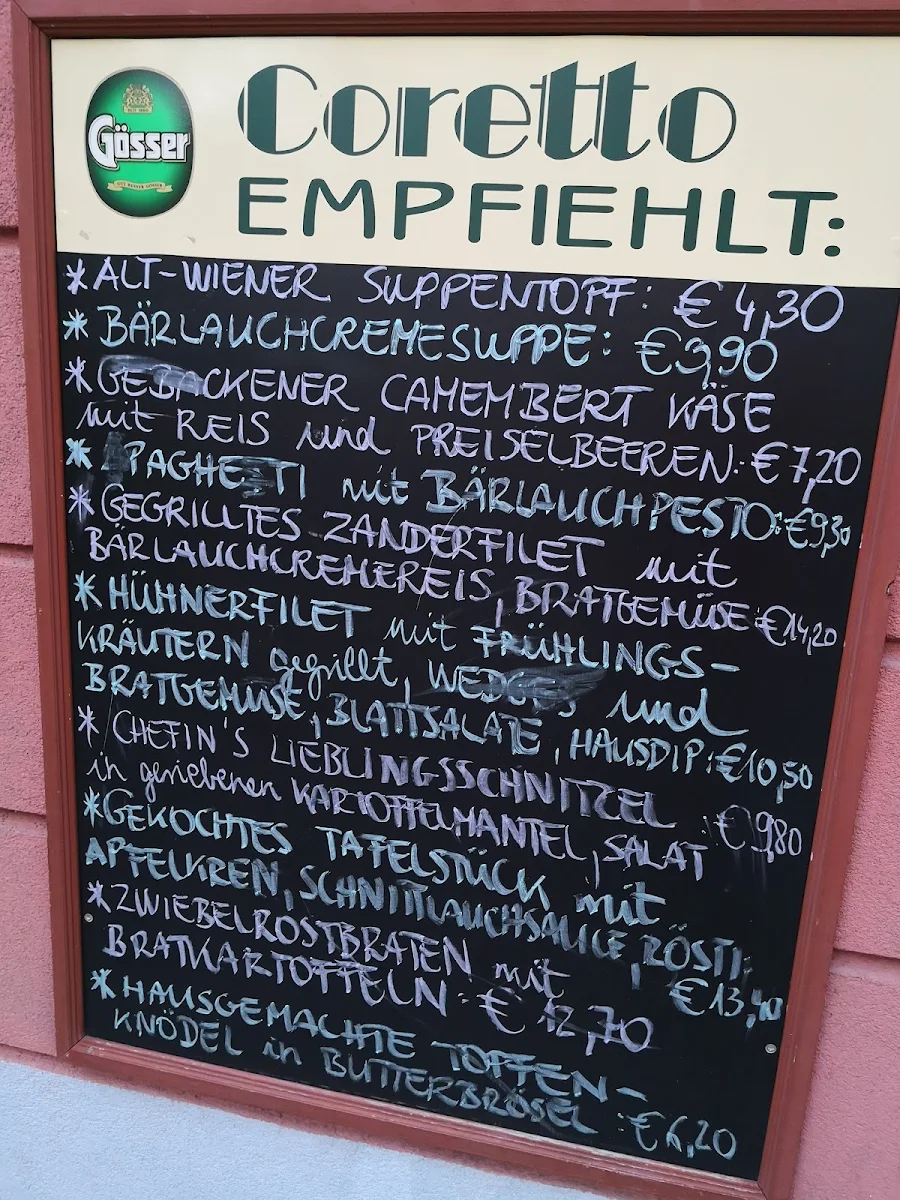 Gösser
Coretto
EMPFIEHLT:
*ALT-WIENER SUPPENTOPF: € 4,30
*BÄRLAUCHCREMESUPPE: €3,90
*GEBACKENER CAMEMBERT KÄSE
mit REIS und PREISELBEEREN: €7,20
*SPAGHETTI mit BÄRLAUCHPESTO: €9,30
*GEGRILLTES ZANDERFILET mit
BÄRLAUCHCREMEREIS, BRATGEMÜSE: €14,20
*HÜHNERFILET mit FRÜHLINGS-
KRÄUTERN gegrillt, WEDGES und
BRATGEMÜSE, BLATTSALATE, HAUSDIP: €10,50
*CHEFIN'S LIEBLINGSSCHNITZEL
in geriebenen KARTOFFELMANTEL, SALAT : € 9,80
*GEKOCHTES TAFELSTÜCK mit
APFELKREN, SCHNITTLAUCHSAUCE, RÖSTI: €13,40
*ZWIEBELROSTBRATEN mit
BRATKARTOFFELN: € 12,70
*HAUSGEMACHTE TOPFEN-
KNÖDEL in BUTTERBRÖSEL : €6,20